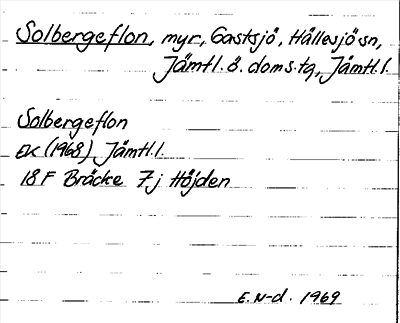 Solbergeflon, myr, Gastsjö, Hällesjö sn,
Jämtl. ö. doms.tg, Jämtl. l.
Solbergeflon
EK (1968) Jämtl. l.
18 F Bräcke 7j Höjden
E. N-d. 1969